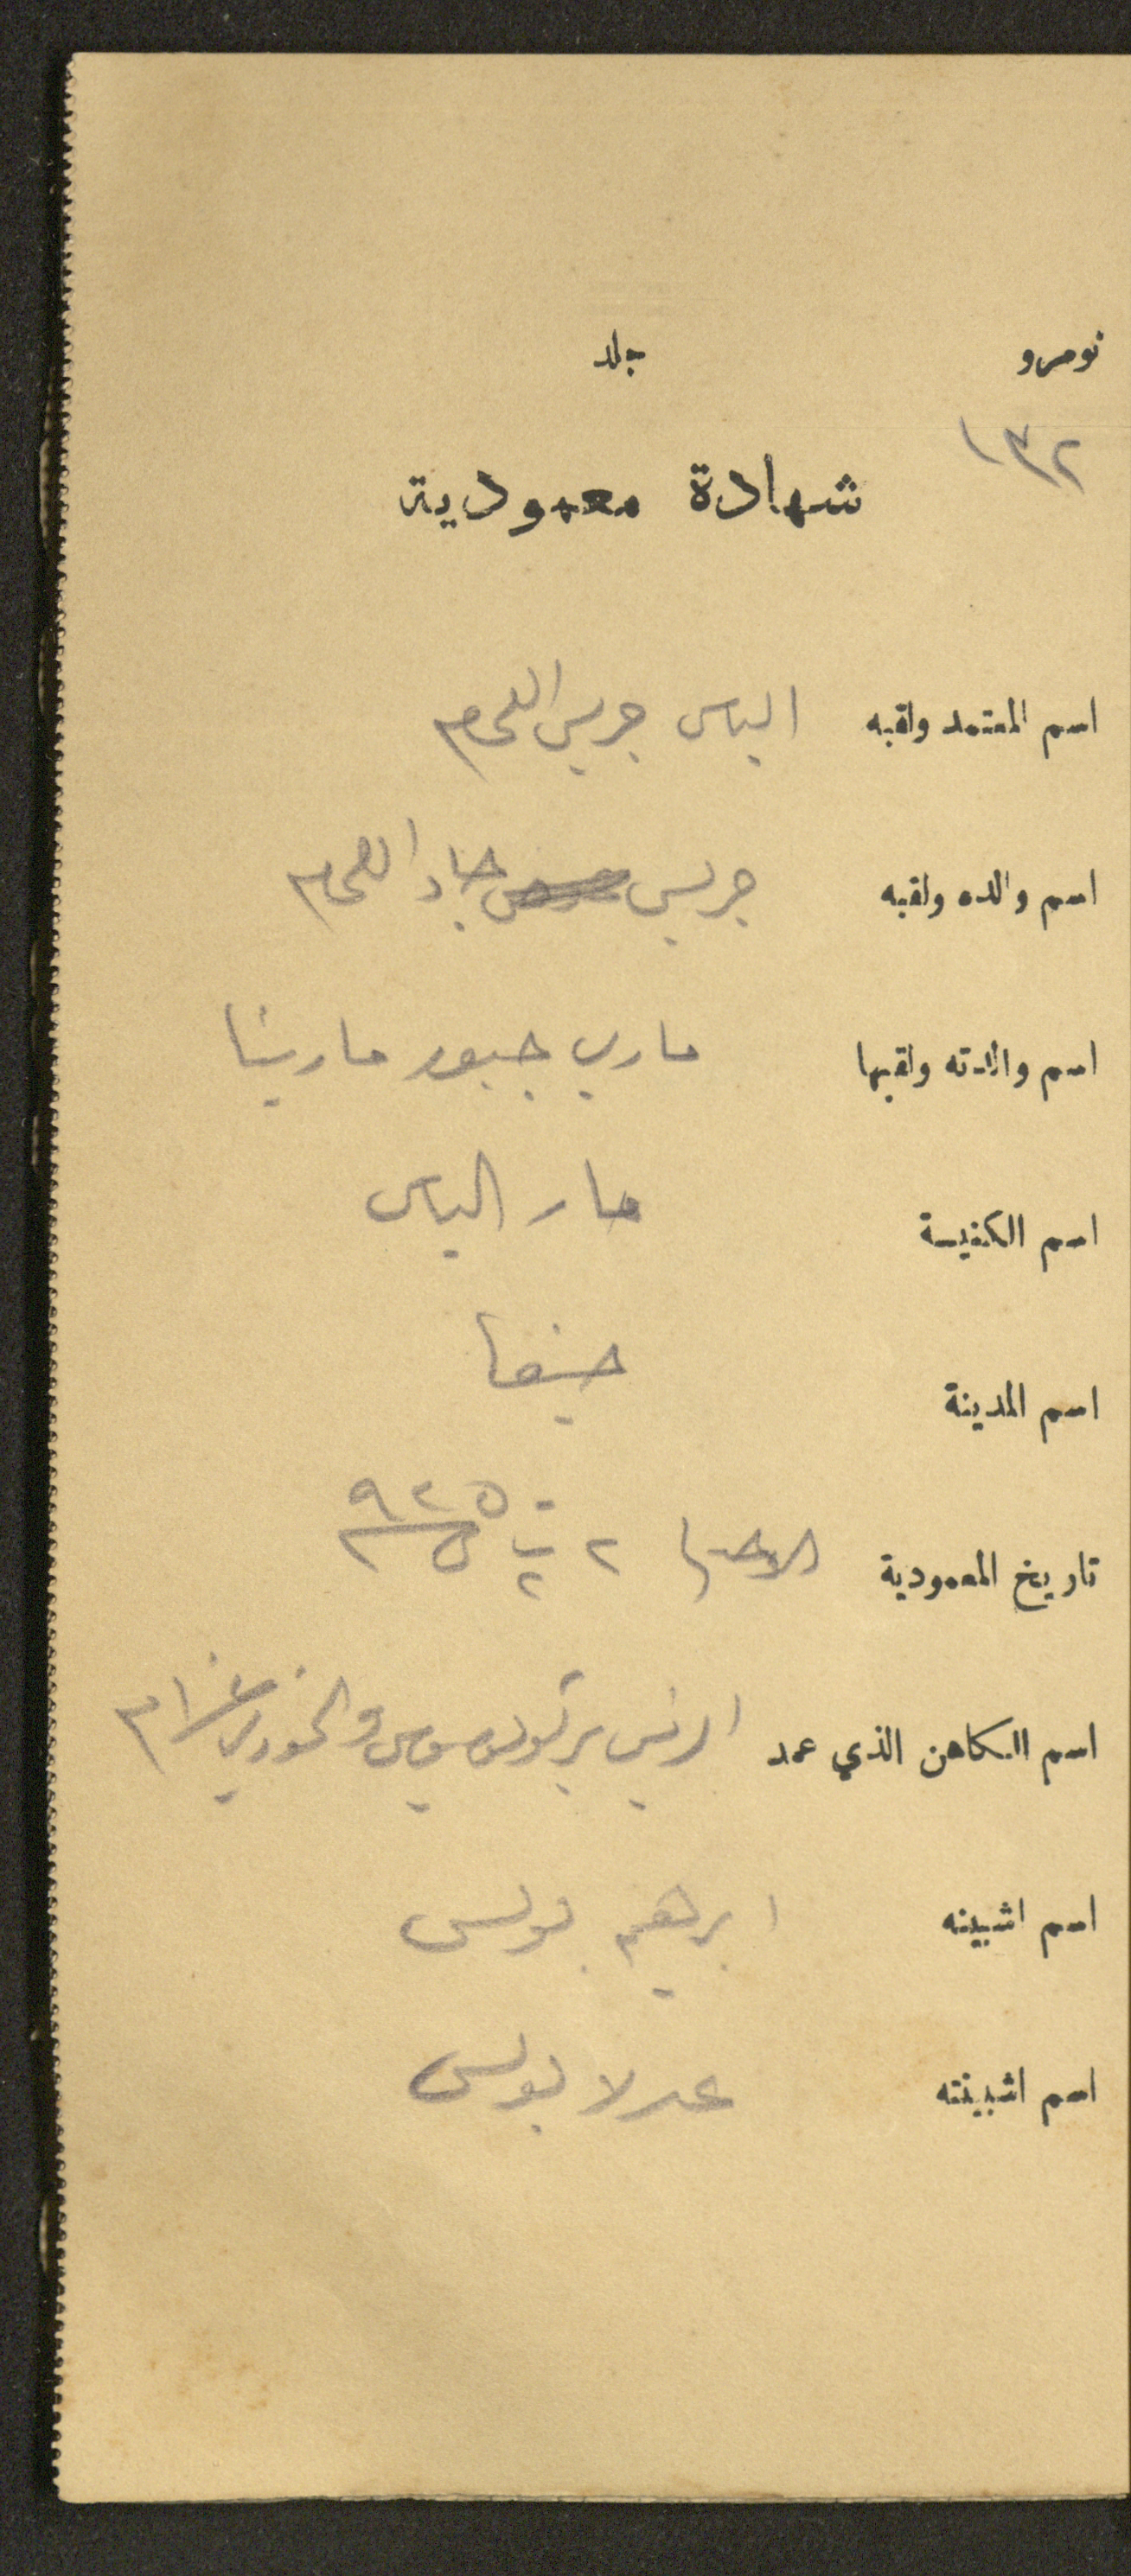 نومرو جلد
١٣٢
شهادة معمودية
اسم المعتمد ولقبه الياس جريس اللحام
اسم والده ولقبه جريس جاد اللحام
اسم والدته ولقبها ماري جبور مارينا
اسم الكنيسة مار الياس
اسم المدينة حيفا
تاريخ المعمودية الاحد ٢ ت٢ ٩٢٥
اسم الكاهن الذي عمد والخوري
اسم اشبينه ابرهيم بولس
اسم اشبينته عدلا بولس